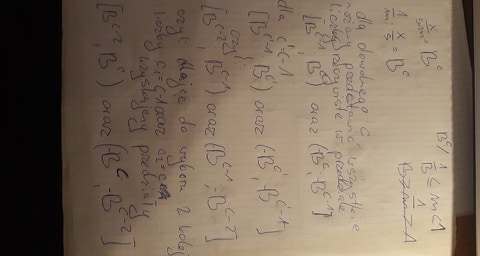 x/sm = B^c
B^c/ 1/B ≤ m < 1
1/m · x/s = B^c
B > 1/m > 1
dla dowolnego c
możemy przedstawić wszystkie
liczby rzeczywiste w przedziale
[B^c-1, B^c) oraz (-B^c, -B^c-1]
dla c'=c-1
[B^c'-1, B^c') oraz (-B^c', -B^c'-1]
czyli
[B^c-2, B^c-1) oraz (-B^c-1, -B^c-2]
czyli dając do wyboru 2 kolej
liczby c₁=c-1 oraz c₂=c
uzyskujemy przedziały
[B^c-2, B^c) oraz (-B^c, -B^c-2]